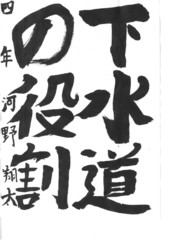 下水道
の役割
四年 河野翔太